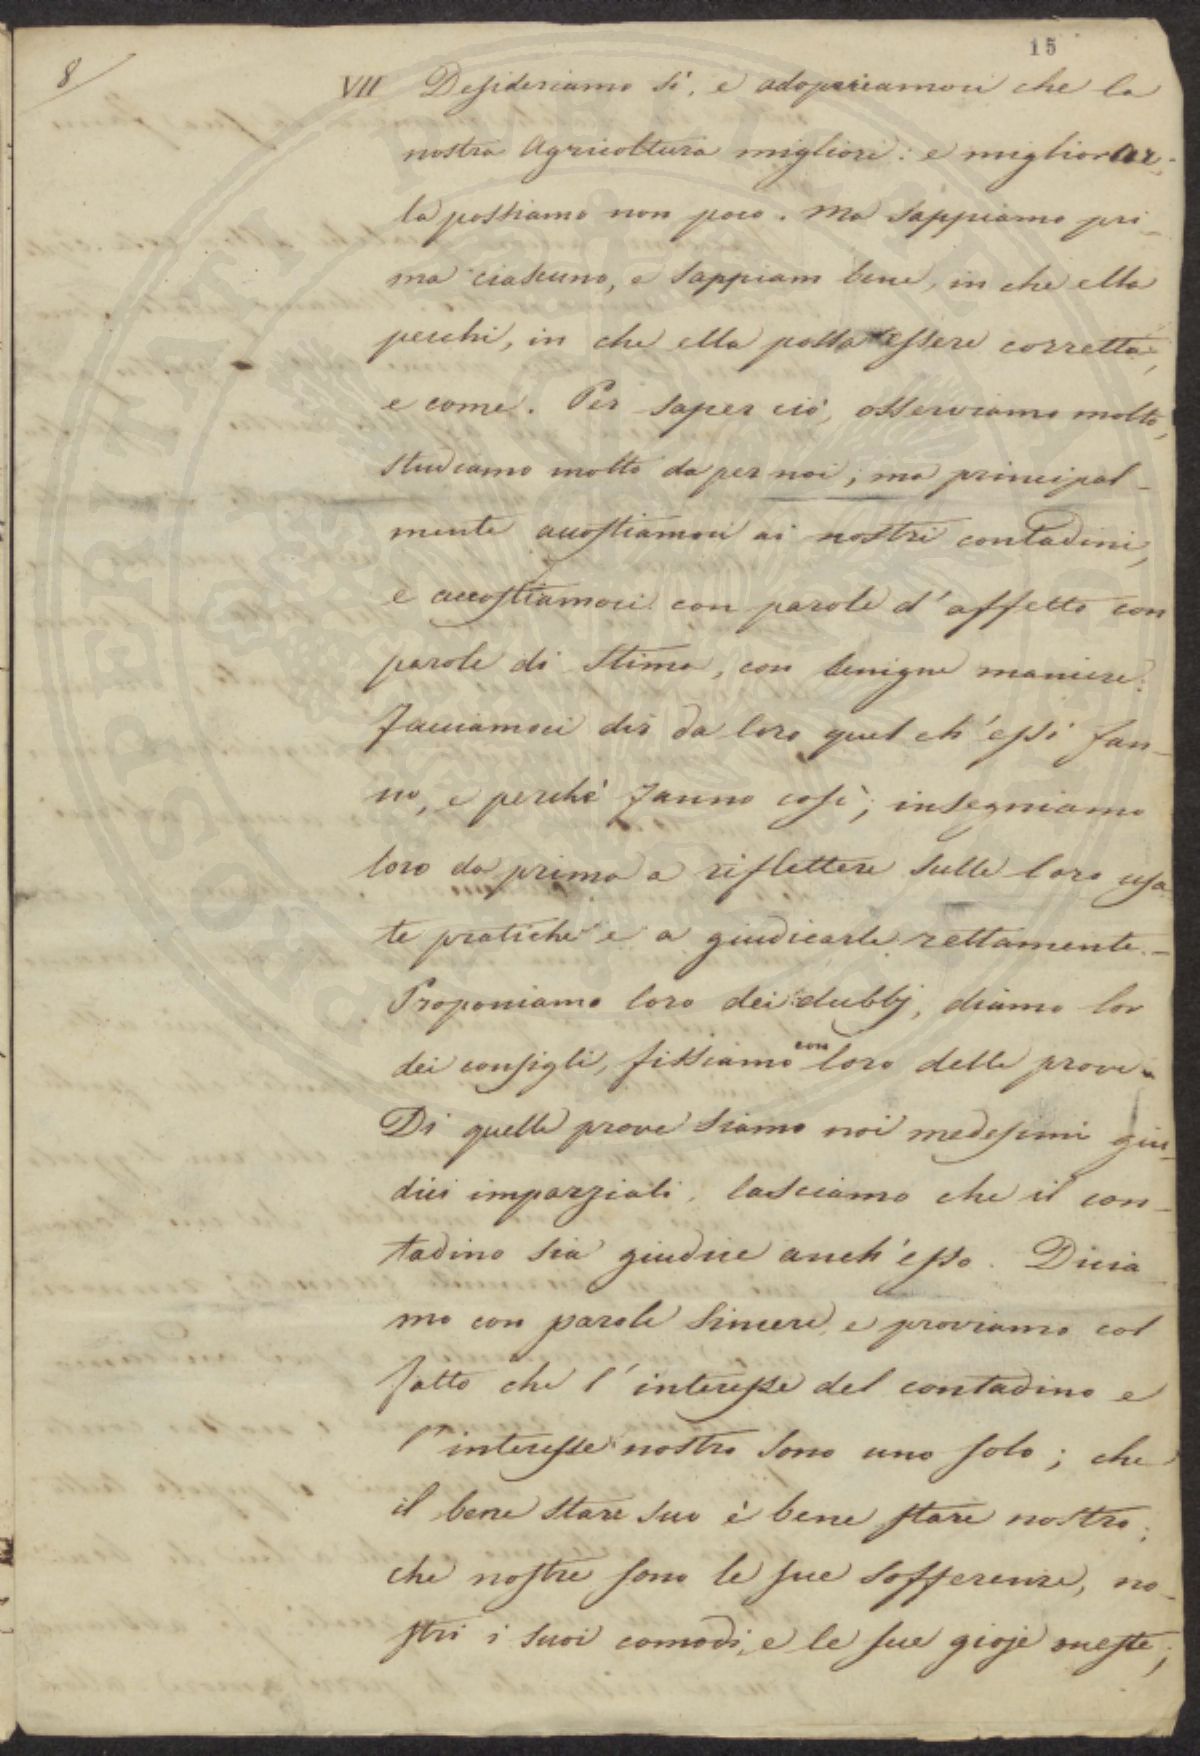 15
8/
VII Desideriamo sì, e adopriamoci che la
nostra Agricoltura migliori: e migliorar-
la possiamo non poco. Ma sappiamo pri-
ma ciascuno, e sappiam bene, in che ella
pecchi, in che ella possa essere corretta,
e come. Per saper ciò, osserviamo molto,
studiamo molto da per noi; ma principal-
mente accostiamoci ai nostri contadini,
e accostiamoci con parole d'affetto con
parole di stima, con benigne maniere:
Facciamoci dir da loro quel ch'essi fan-
no, e perchè fanno così; insegniamo
loro da prima a riflettere sulle loro usa-
te pratiche e a giudicarle rettamente.-
Proponiamo loro dei dubbj, diamo lor
dei consigli, fissiamo con loro delle prove.
Di quelle prove siamo noi medesimi giu-
dici imparziali, lasciamo che il con-
tadino sia giudice anch'esso. Dicia-
mo con parole sincere, e proviamo col
fatto che l'interesse del contadino e
l'interesse nostro sono uno solo; che
il bene stare suo è bene stare nostro;
che nostre sono le sue sofferenze, no-
stri i suoi comodi, e le sue gioje oneste;
PROSPERITATI PUBLICAE